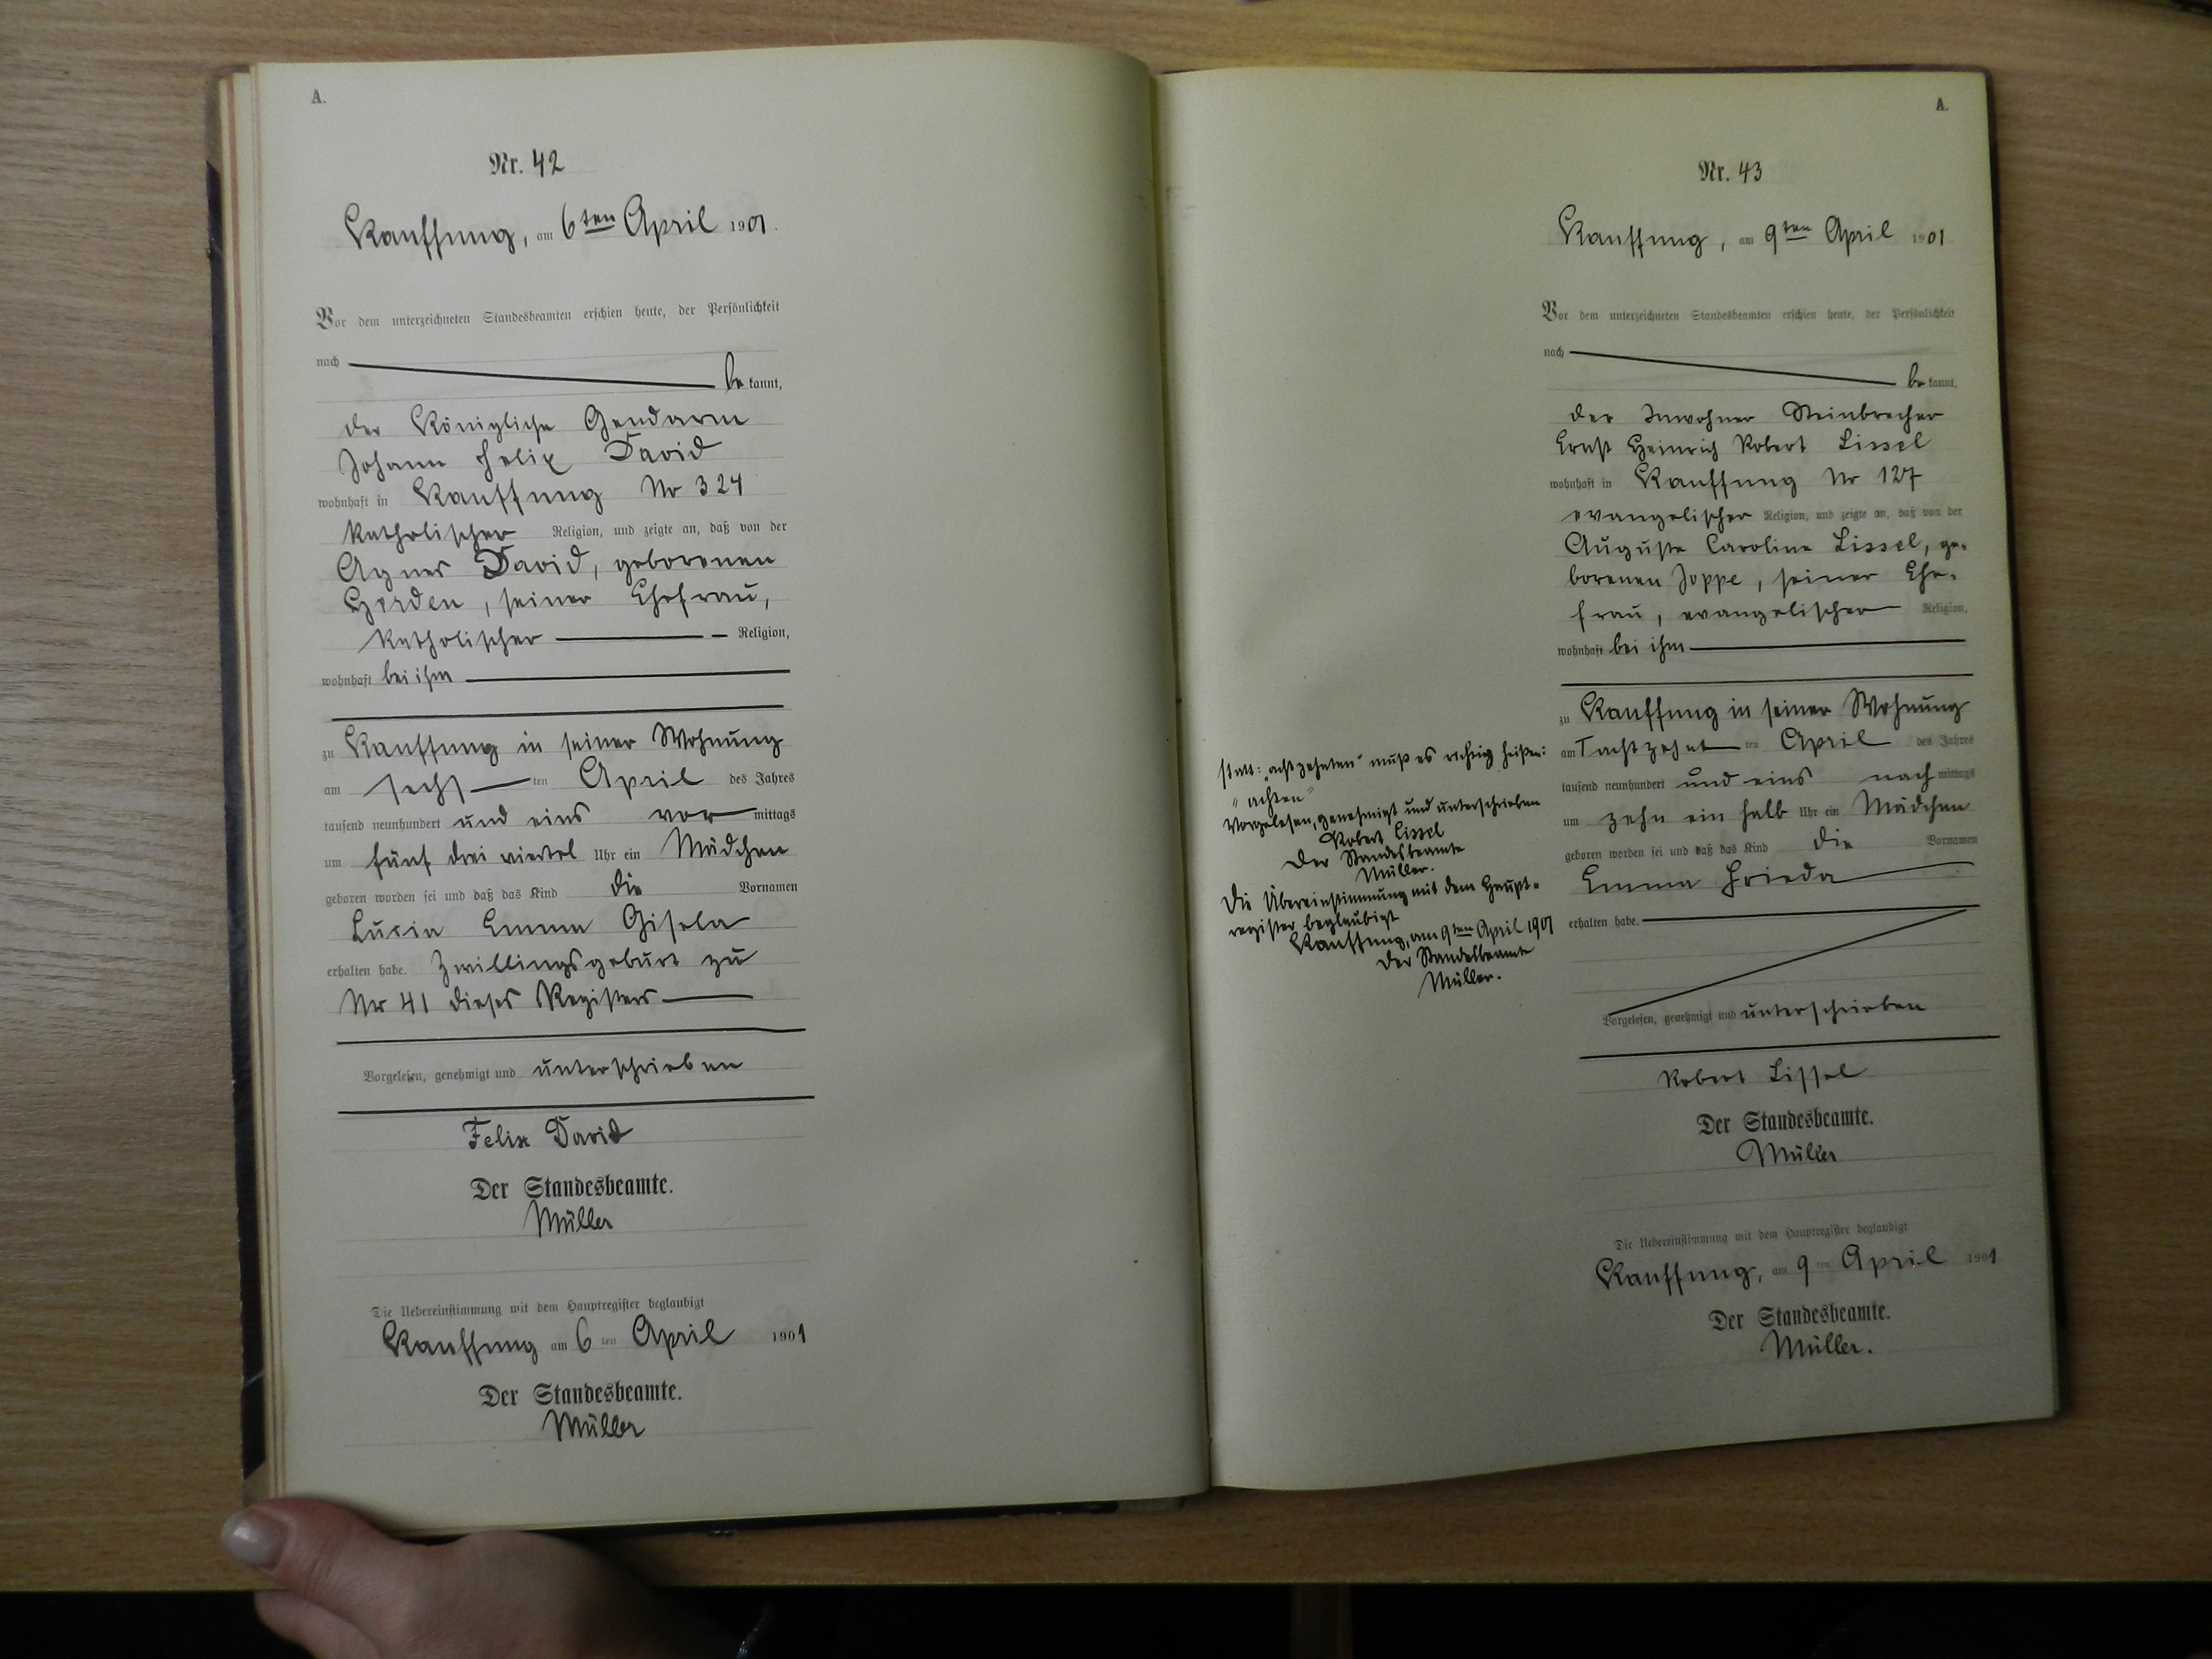 A.
Nr. 42
Kauffung, am 6ten April 1901.
Vor dem unterzeichneten Standesbeamten erschien heute, der Persönlichkeit
nach
be kannt,
der Königliche Gendarm
Johann Felix David
wohnhaft in Kauffung Nr 324
katholischer Religion, und zeigte an, daß von der
Agnes David, geborenen
Gerden, seiner Ehefrau,
katholischer Religion,
wohnhaft bei ihm
zu Kauffung in seiner Wohnung
am sechs ten April des Jahres
tausend neunhundert und eins vor mittags
um fünf drei viertel Uhr ein Mädchen
geboren worden sei und daß das Kind die Vornamen
Lucia Emma Gisela
erhalten habe. Zwillingsgeburt zu
Nr 41 dieses Registers
Vorgelesen, genehmigt und unterschrieben
Felix David
Der Standesbeamte.
Müller
Die Uebereinstimmung mit dem Hauptregister beglaubigt
Kauffung am 6 ten April 1901
Der Standesbeamte.
Müller
A.
Nr. 43
Kauffung, am 9ten April 1901.
Vor dem unterzeichneten Standesbeamten erschien heute, der Persönlichkeit
nach
be kannt,
der Inwohner Steinbrecher
Ernst Heinrich Robert Lissel
wohnhaft in Kauffung Nr 127
evangelischer Religion, und zeigte an, daß von der
Auguste Caroline Lissel, ge-
borenen Joppe, seiner Ehe-
frau, evangelischer Religion,
wohnhaft bei ihm
zu Kauffung in seiner Wohnung
am achtzehnt ten April des Jahres
tausend neunhundert und eins nach mittags
um zehn ein halb Uhr ein Mädchen
geboren worden sei und daß das Kind die Vornamen
Emma Frieda
erhalten habe.
Vorgelesen, genehmigt und unterschrieben
Robert Lissel
Der Standesbeamte.
Müller
Die Uebereinstimmung mit dem Hauptregister beglaubigt
Kauffung, am 9 ten April 1901
Der Standesbeamte.
Müller.
statt: "achtzehnten" muß es richtig heißen:
"achten"
Vorgelesen, genehmigt und unterschrieben
Robert Lissel
Der Standesbeamte
Müller.
Die Übereinstimmung mit dem Haupt-
register beglaubigt
Kauffung, am 9ten April 1901
Der Standesbeamte
Müller.